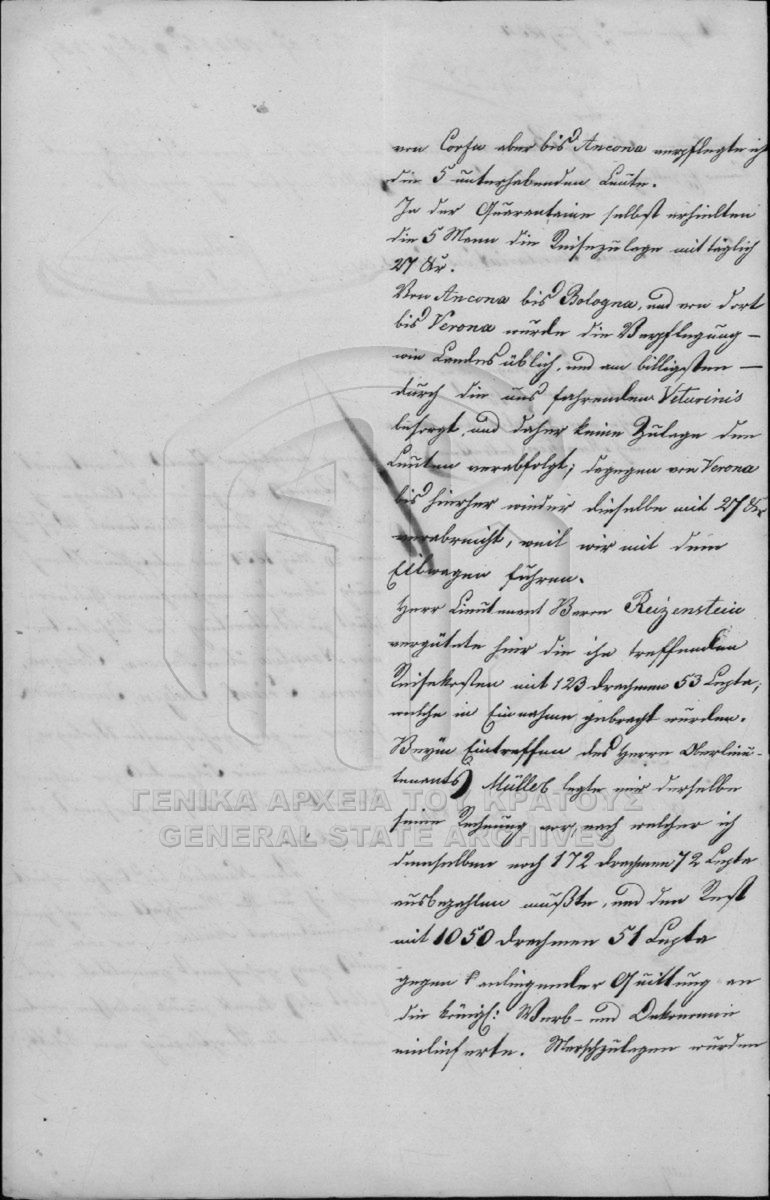 von Corfu aber bis Ancona verpflegte ich
die 5 unterhabenden Leute.
In der Quarantaine selbst erhielten
die 5 Mann die Reisezulage mit täglich
27 Kr.
Von Ancona bis Bologna, und von dort
bis Verona wurde die Verpflegung –
wie Landes üblich, und am billigsten –
durch die uns fahrenden Veturini's
besorgt, und daher keine Zulage den
Leuten verabfolgt; dagegen von Verona
bis hierher wieder dieselbe mit 27 Kr
verabreicht, weil wir mit dem
Eilwagen fuhren.
Herr Lieutenant Baron Reizenstein
vergütete hier die ihn treffenden
Reisekosten mit 123 Drachmen 53 Lepta,
welche in Einnahme gebracht wurden.
Beym Eintreffen des Herrn Oberlieu-
tenants Müller legte mir derselbe
seine Rechnung vor, nach welcher ich
demselben noch 172 Drachmen 72 Lepta
ausbezahlen mußte, und den Rest
mit 1050 Drachmen 51 Lepta
gegen anliegender Quittung an
die königl: Werb- und Oekonomie
einlieferte. Marschzulagen wurden
ΓΕΝΙΚΑ ΑΡΧΕΙΑ ΤΟΥ ΚΡΑΤΟΥΣ
GENERAL STATE ARCHIVES